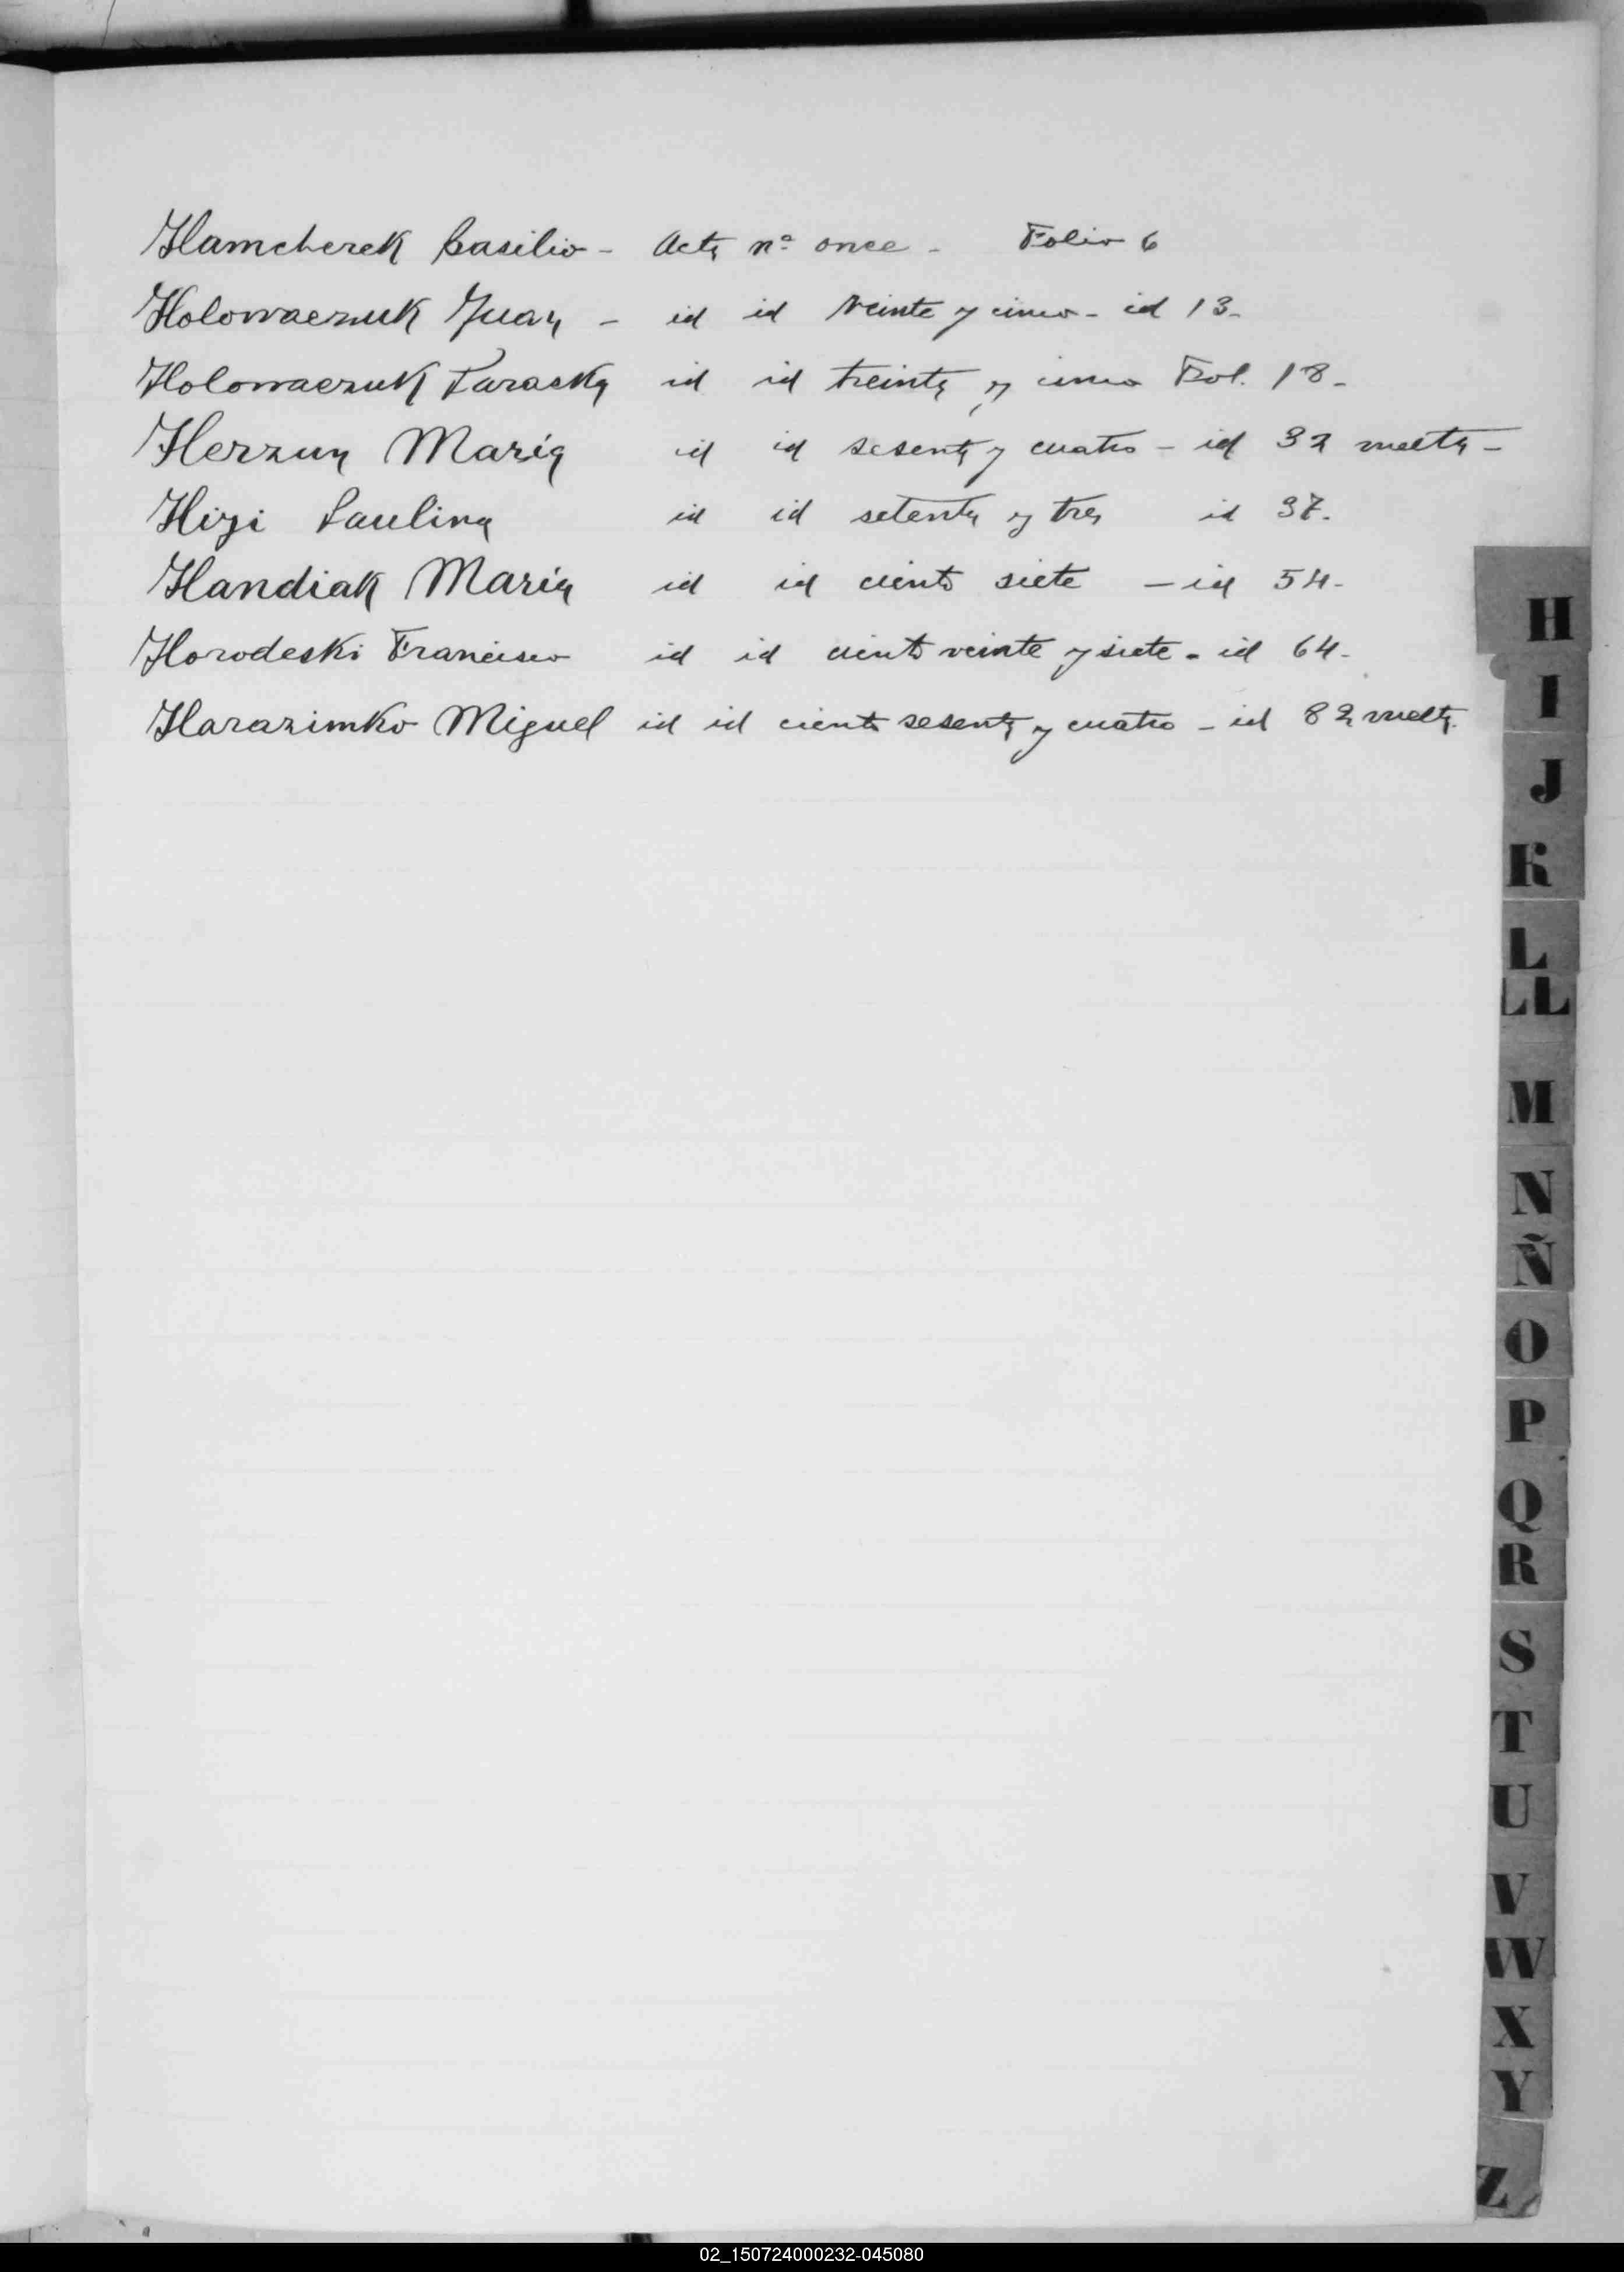 Hamcherek Basilio - Acta nº once - Folio 6
Holowaczuk Juan - id id veinte y cinco - id 13-
Holowaczuk Paraska id id treinta y cinco Fol. 18-
Herzun Maria id id sesenta y cuatro - id 32 vuelta -
Hizi Paulina id id setenta y tres id 37.
Handiak Maria id id ciento siete - id 54-
Horodeski Francisco id id ciento veinte y siete - id 64-
Harazimko Miguel id id ciento sesenta y cuatro - id 82 vuelta.
H
I
J
K
L
LL
M
N
Ñ
O
P
Q
R
S
T
U
V
W
X
Y
Z
02_150724000232-045080